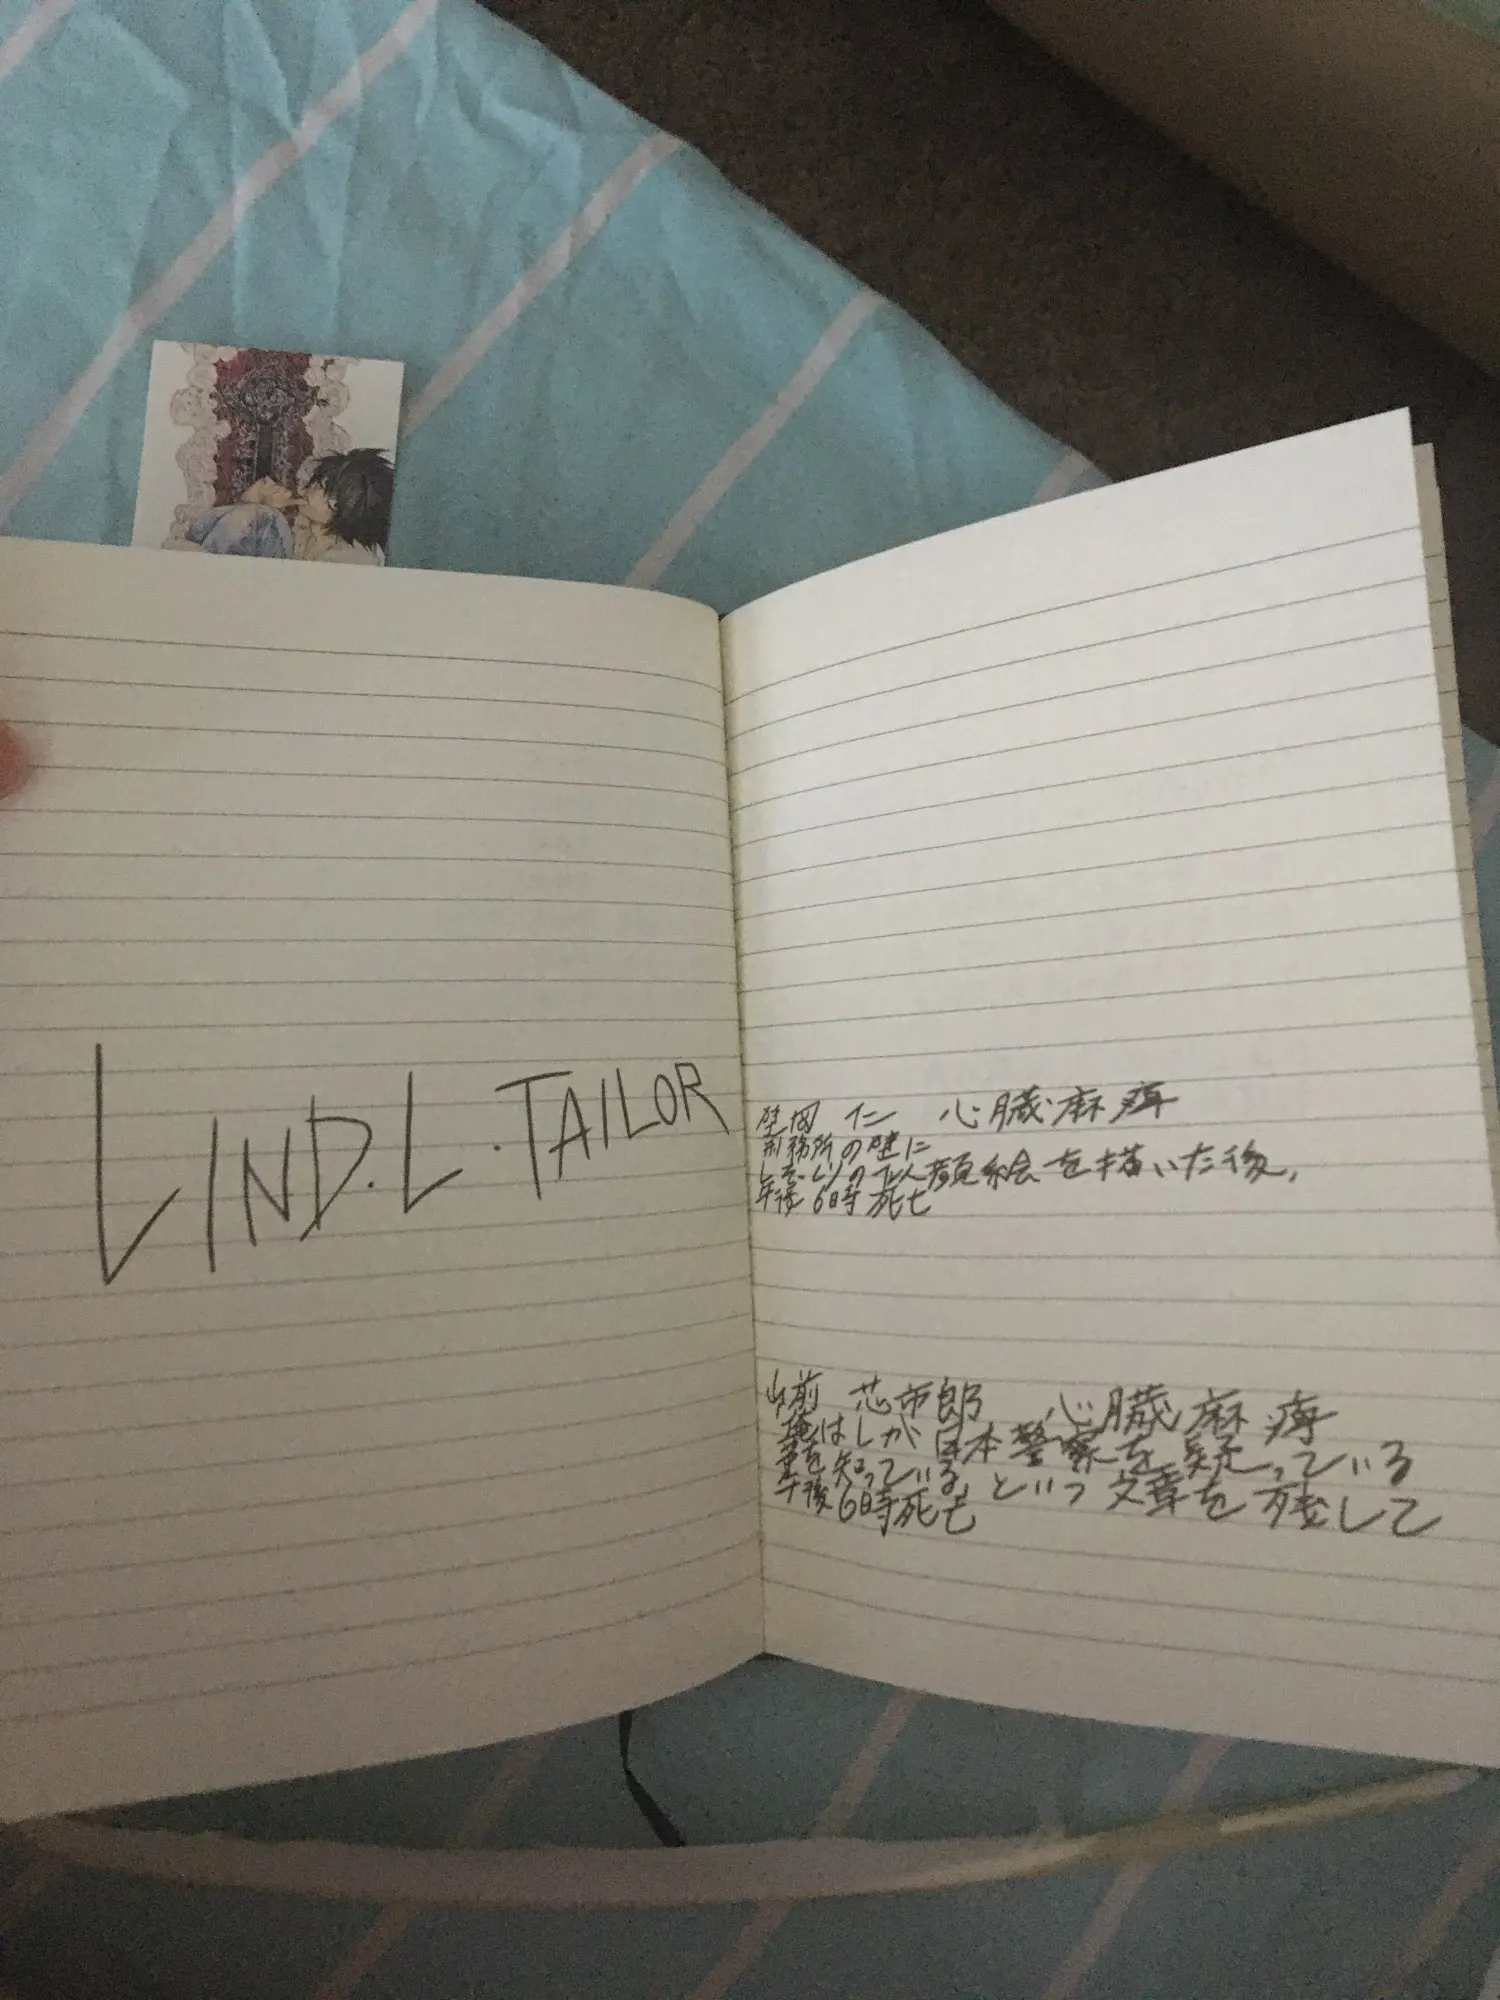 LIND.L.TAILOR
岡 仁 心臓麻痺
務所の壁に
の似顔絵を描いた後、
午後6時 死亡
山前 芯市郎 心臓麻痺
俺はLが日本警察を疑っている
事を知っている、という文章を残して
午後6時死亡